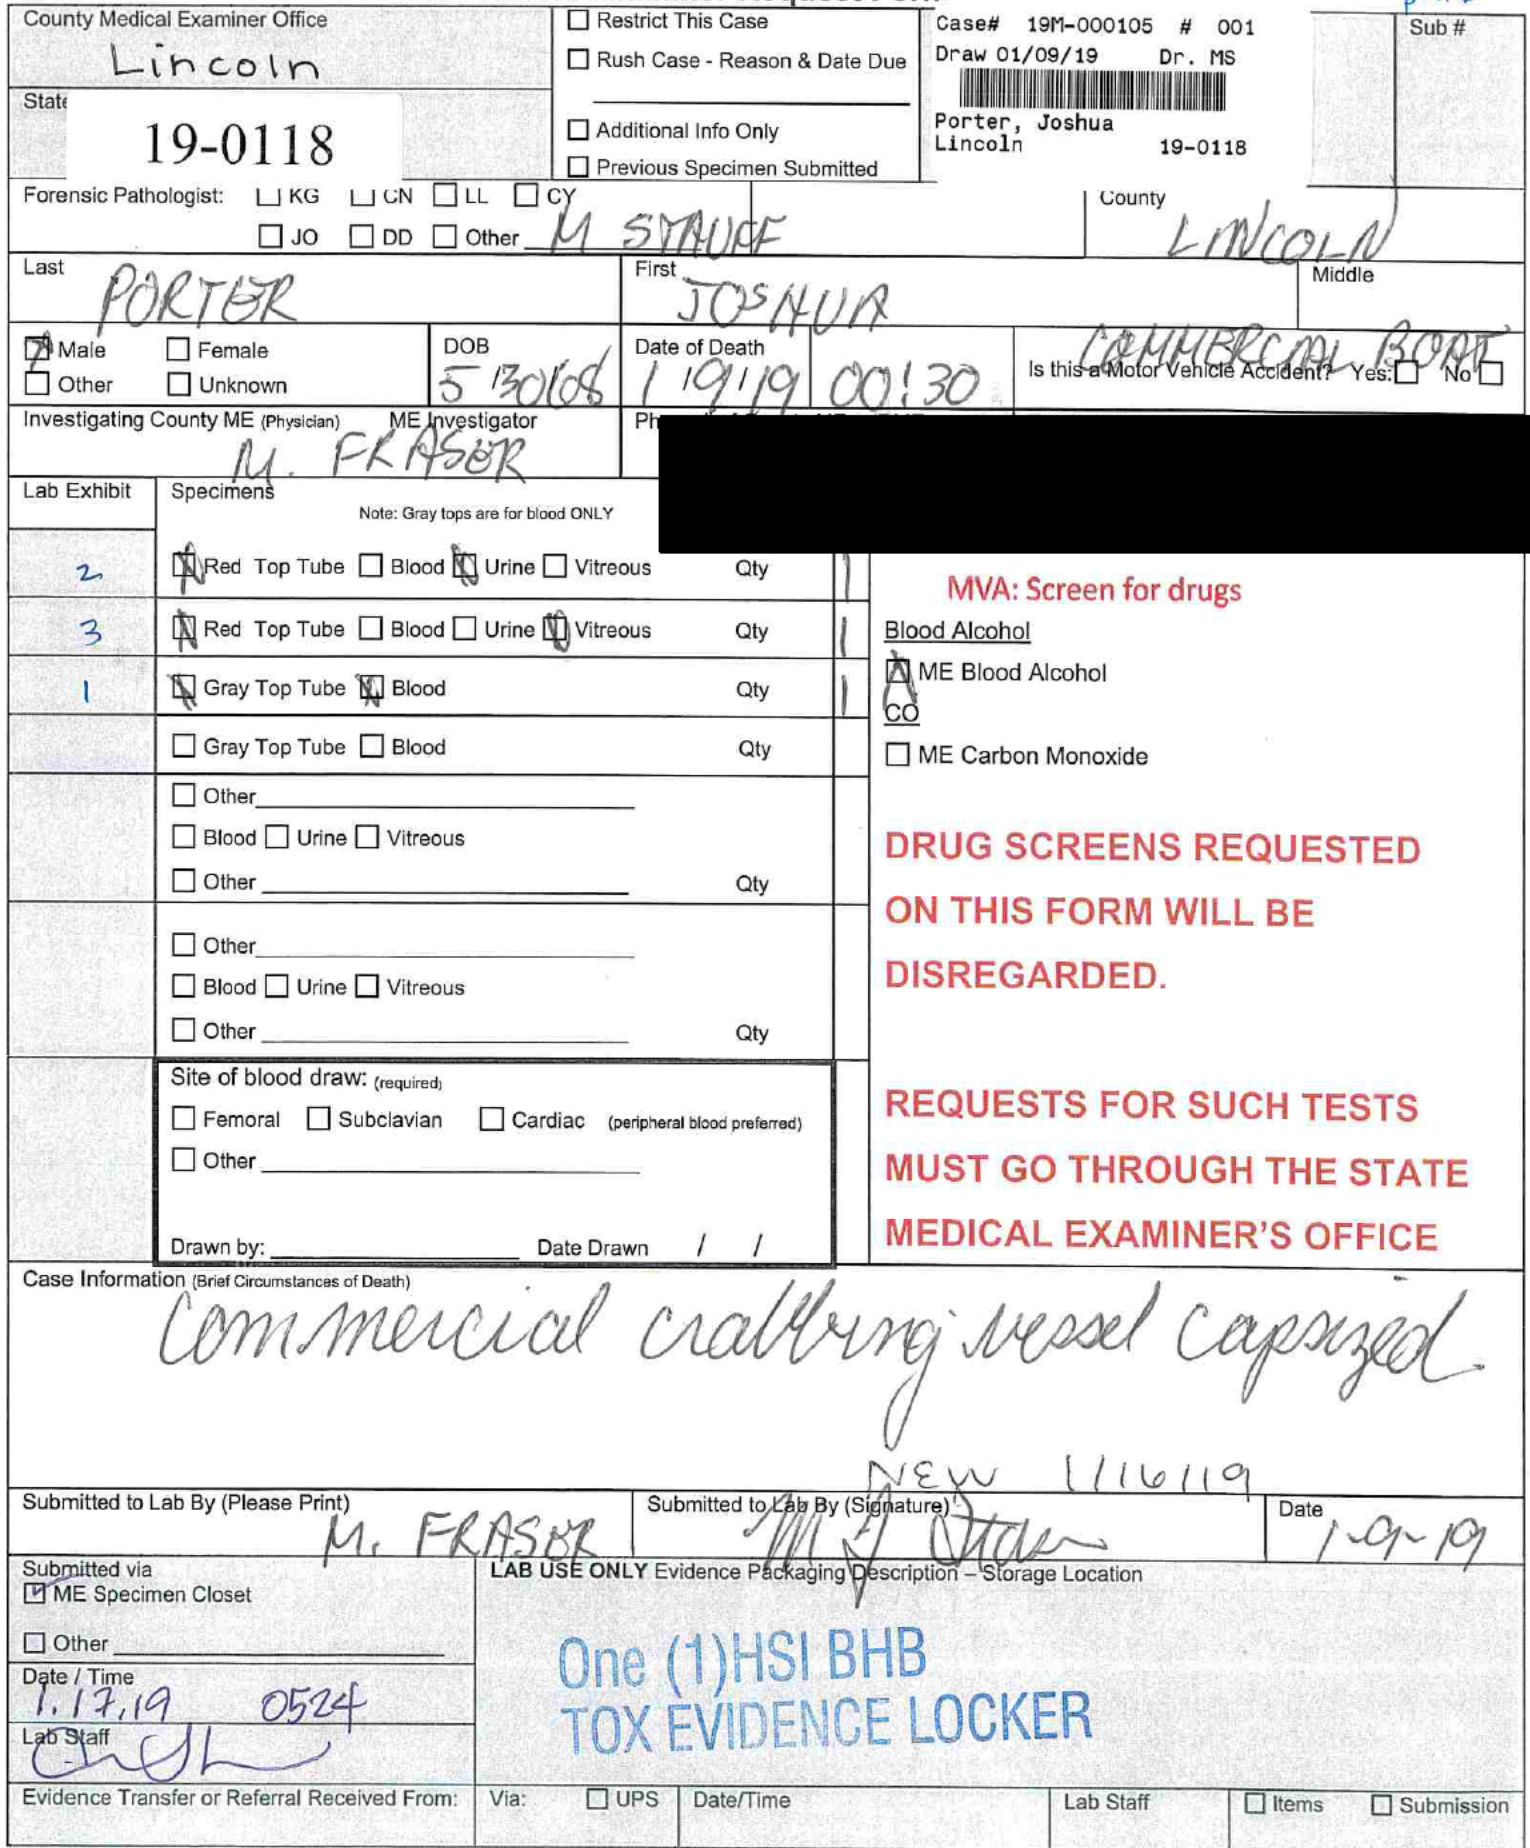 County Medical Examiner Office
Lincoln
Restrict This Case
Rush Case - Reason & Date Due
Additional Info Only
Previous Specimen Submitted
Case# 19M-000105 # 001
Draw 01/09/19 Dr. MS
Porter, Joshua
Lincoln 19-0118
Sub #
State
19-0118
Forensic Pathologist: KG CN LL CY
JO DD Other M STAUFF
County
LINCOLN
Last
PORTER
First
JOSHUA
Middle
Male Female
Other Unknown
DOB
5/30/68
Date of Death
1/9/19 00:30
COMMERCIAL BOAT
Is this a Motor Vehicle Accident? Yes: No
Investigating County ME (Physician) ME Investigator
M. FRASER
Ph
Lab Exhibit
Specimens
Note: Gray tops are for blood ONLY
2 Red Top Tube Blood Urine Vitreous Qty 1
3 Red Top Tube Blood Urine Vitreous Qty 1
1 Gray Top Tube Blood Qty 1
Gray Top Tube Blood Qty
Other
Blood Urine Vitreous
Other Qty
Other
Blood Urine Vitreous
Other Qty
Site of blood draw: (required)
Femoral Subclavian Cardiac (peripheral blood preferred)
Other
Drawn by: Date Drawn / /
MVA: Screen for drugs
Blood Alcohol
ME Blood Alcohol
CO
ME Carbon Monoxide
DRUG SCREENS REQUESTED
ON THIS FORM WILL BE
DISREGARDED.
REQUESTS FOR SUCH TESTS
MUST GO THROUGH THE STATE
MEDICAL EXAMINER'S OFFICE
Case Information (Brief Circumstances of Death)
Commercial crabbing vessel capsized.
NEW 1/16/19
Submitted to Lab By (Please Print)
M. FRASER
Submitted to Lab By (Signature)
Date
1-9-19
Submitted via
ME Specimen Closet
Other
Date / Time
1.17.19 0524
Lab Staff
LAB USE ONLY Evidence Packaging Description – Storage Location
One (1)HSI BHB
TOX EVIDENCE LOCKER
Evidence Transfer or Referral Received From:
Via: UPS
Date/Time
Lab Staff
Items Submission